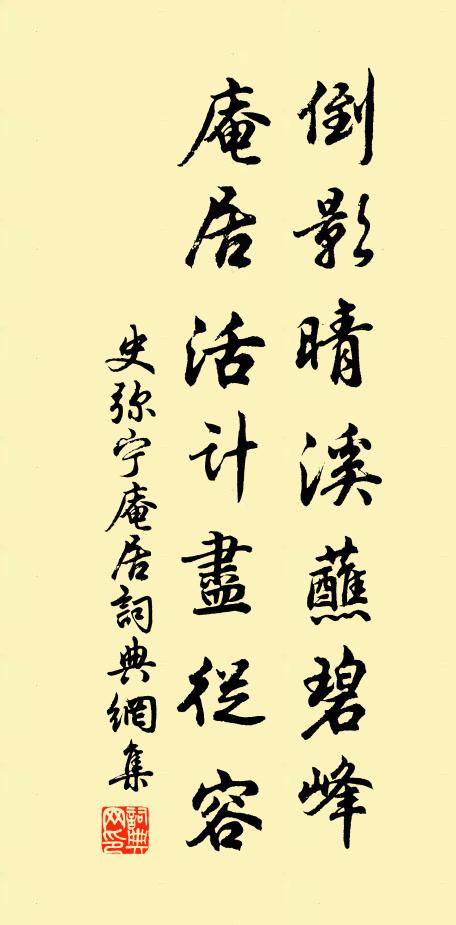 倒影晴溪蘸碧峰
庵居活计盡從容
史弥宁庵居詞典網集
詞典网印